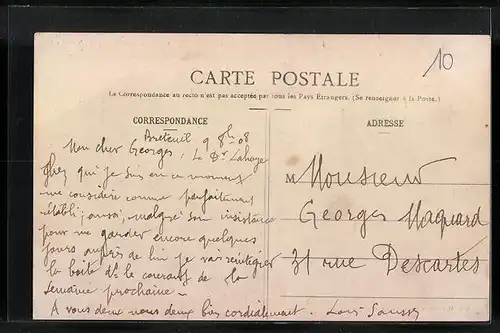 10
CARTE POSTALE
La Correspondance au recto n'est pas acceptée par tous les Pays Etrangers. (Se renseigner à la Poste.)
CORRESPONDANCE
ADRESSE
Breteuil 9 8bre 08
Mon cher Georges, Le Dr Lahaye
chez qui je suis en ce moment
me considère comme parfaitement
rétabli; aussi, malgré son insistance
pour me garder encore quelques
jours auprès de lui je vais réintégrer
la boîte ds le courant de la
semaine prochaine –
A vous deux nous deux bien cordialement.
M Monsieur
Georges Maquard
31 rue Descartes